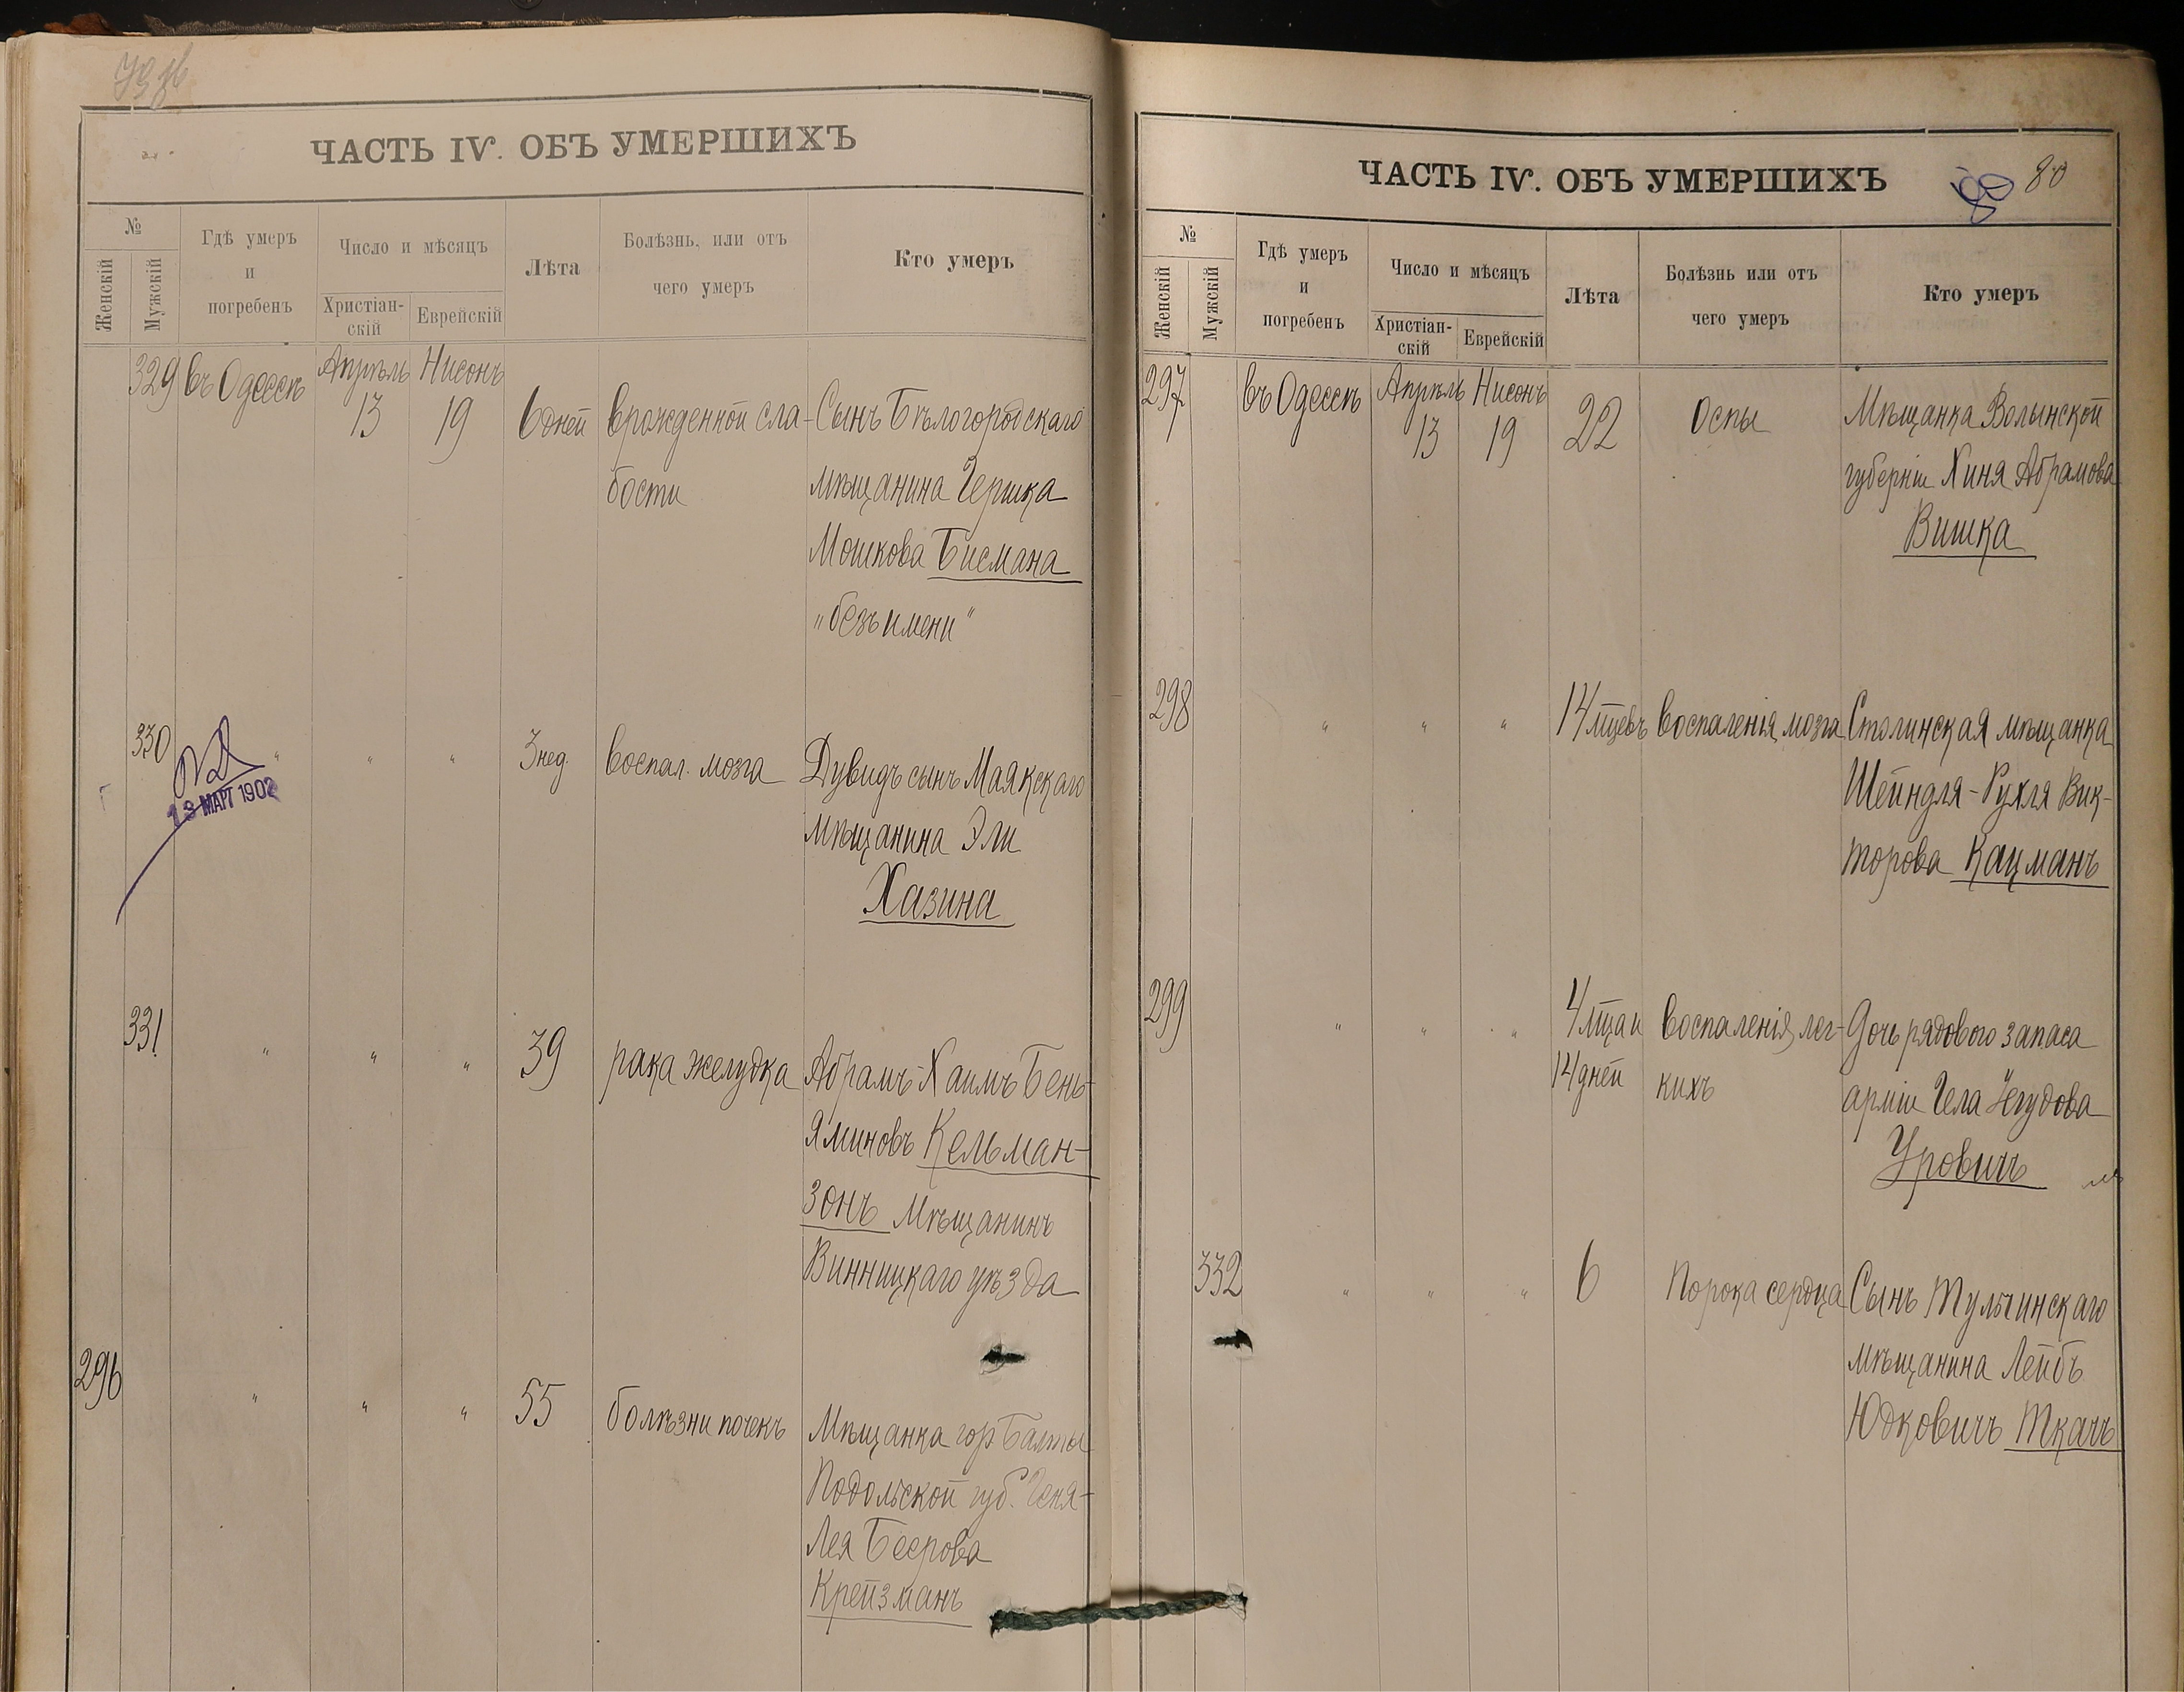 ЧАСТЬ IV. ОБЪ УМЕРШИХЪ
№
Женскій
Мужскій
Гдѣ умеръ
и
погребенъ
Число и мѣсяцъ
Христіан-
скій
Еврейскій
Лѣта
Болѣзнь, или отъ
чего умеръ
Кто умеръ
329 въ Одессѣ Апрѣль Нисонъ
13 19 6 дней врожденной сла- Сынъ Бѣлогородскаго
бости мѣщанина Гершка
Мошкова Бисмана
"безъ имени"
330 " " " 3 нед. воспал. мозга Дувидъ сынъ Маякскаго
13 МАРТ 1902
мѣщанина Эли
Хазина
331 " " " 39 рака желудка Абрамъ-Хаимъ Бень-
яминовъ Кельман-
зонъ Мѣщанинъ
Винницкаго уѣзда
296 " " " 55 болѣзни почекъ Мѣщанка гор. Балты
Подольской губ. Геня-
Лея Беерова
Крейзманъ
ЧАСТЬ IV. ОБЪ УМЕРШИХЪ
80 80
№
Женскій
Мужскій
Гдѣ умеръ
и
погребенъ
Число и мѣсяцъ
Христіан-
скій
Еврейскій
Лѣта
Болѣзнь или отъ
чего умеръ
Кто умеръ
297 въ Одессѣ Апрѣль Нисонъ
13 19 22 Оспы Мѣщанка Волынской
губерніи Хиня Абрамова
Вишка
298 " " " 14 мцевъ воспаленія мозга Столинская мѣщанка
Шейндля-Рухля Вик-
торова Кацманъ
299 " " " 4 мца и воспаленія лег- Дочь рядового запаса
14 дней кихъ арміи Гела Іегудова
Уровичъ
332 " " " 6 Порока сердца Сынъ Тульчинскаго
мѣщанина Лейбъ
Юдковичъ Ткачъ